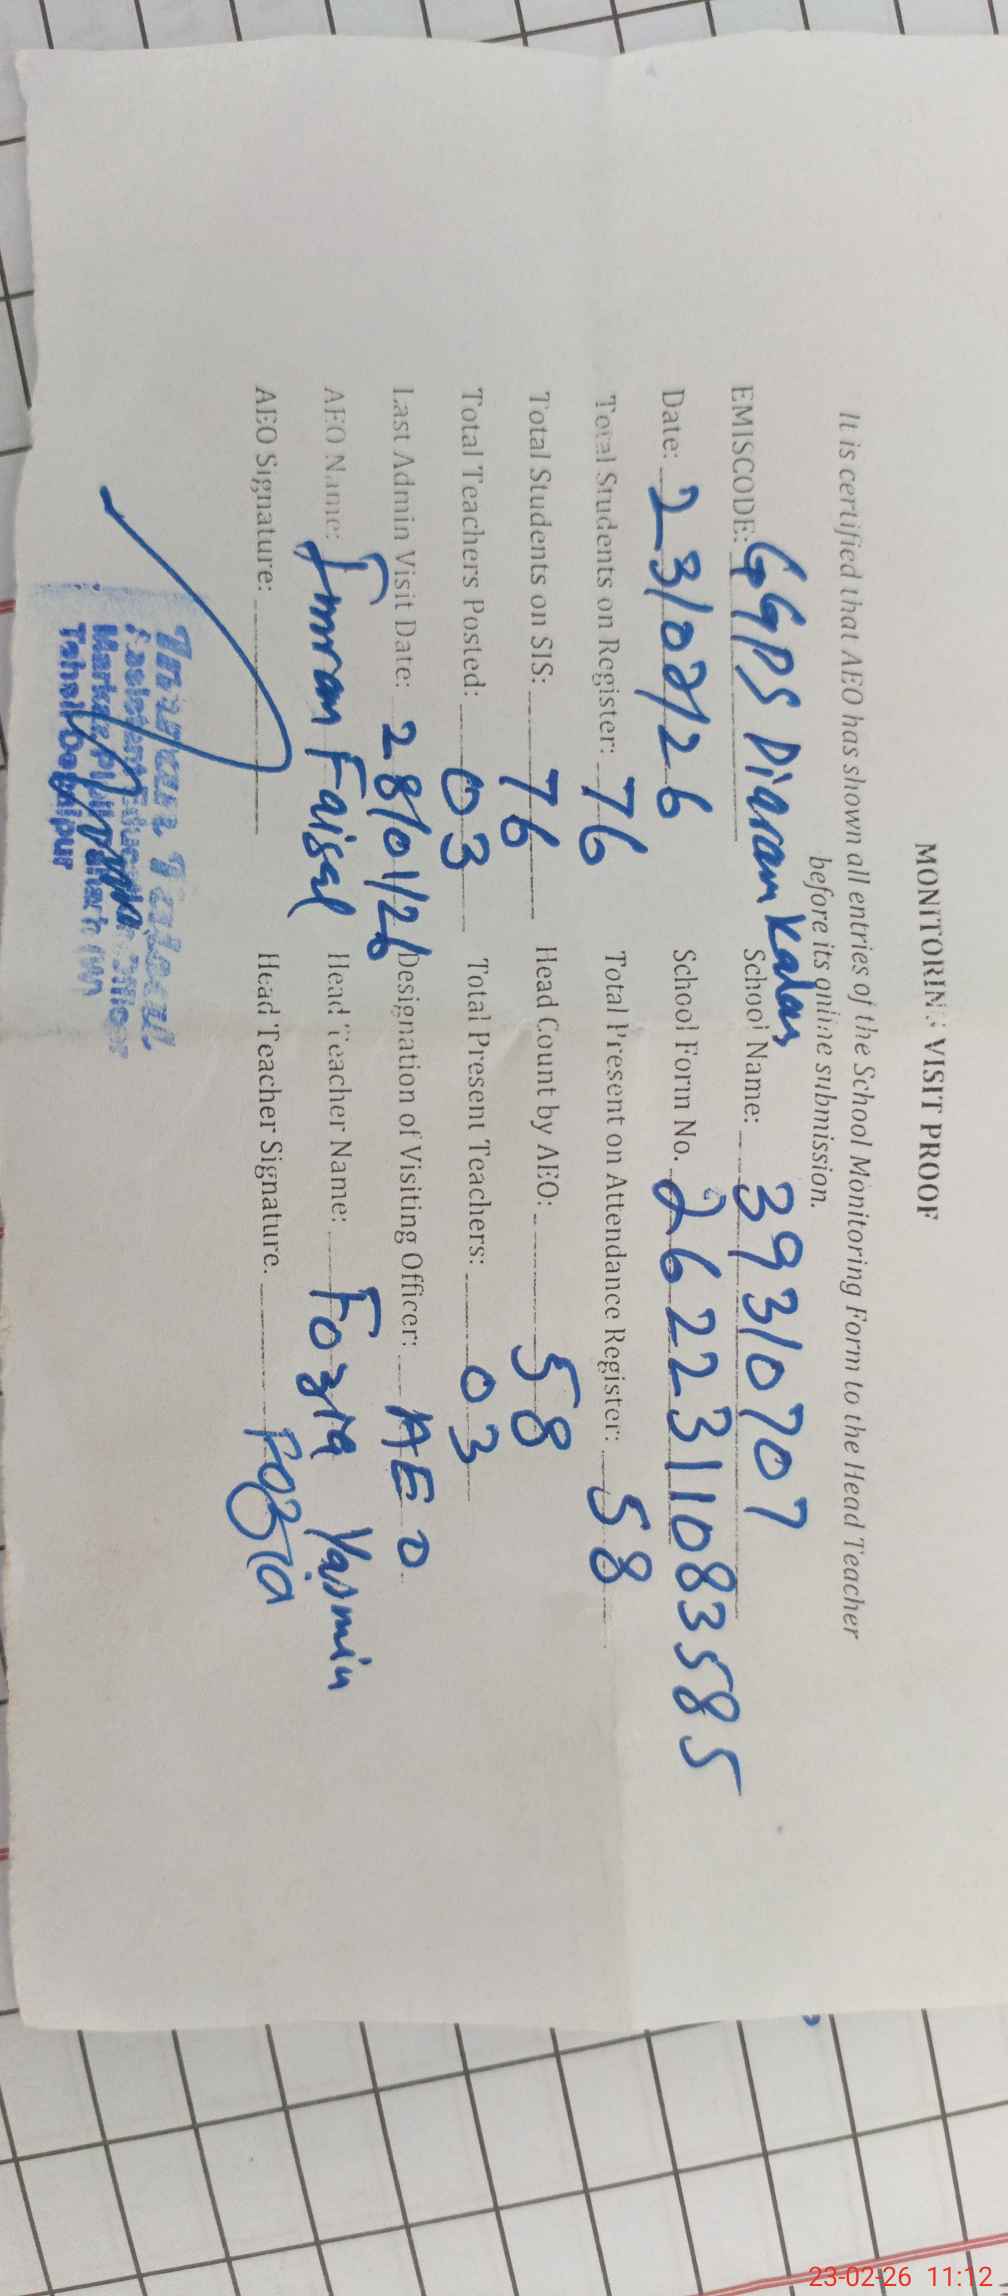 MONITORING VISIT PROOF
It is certified that AEO has shown all entries of the School Monitoring Form to the Head Teacher
before its online submission.
EMISCODE: GGPS Diaram Kalan School Name: 39310707
Date: 23/02/26 School Form No. 2622311083585
Total Students on Register: 76 Total Present on Attendance Register: 58
Total Students on SIS: 76 Head Count by AEO: 58
Total Teachers Posted: 03 Total Present Teachers: 03
Last Admin Visit Date: 28/01/26 Designation of Visiting Officer: AEO
AEO Name: Imran Faisal Head Teacher Name: Fozia Yasmin
AEO Signature: Head Teacher Signature. Fozia
Assistant Education Officer
Markaz
Tehsil Depalpur
23-02-26 11:12